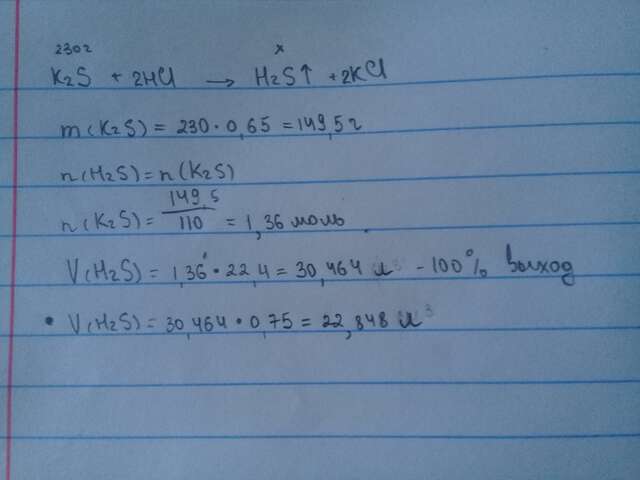 230г x
K2S + 2HCl → H2S↑ + 2KCl
m(K2S) = 230·0,65 = 149,5г
n(H2S) = n(K2S)
n(K2S) = 149,5/110 = 1,36 моль.
V(H2S) = 1,36·22,4 = 30,464 л - 100% выход
• V(H2S) = 30,464·0,75 = 22,848 л